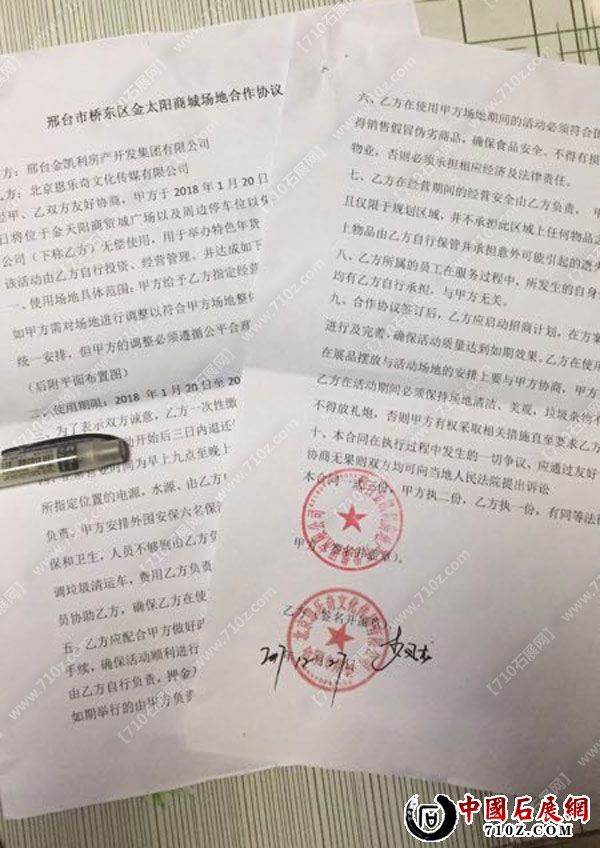 邢台市桥东区金太阳商城场地合作协议
方：邢台金凯利房产开发集团有限公司
方：北京恩乐奇文化传媒有限公司
经甲、乙双方友好协商，甲方于 2018 年 1 月 20 日
日将位于金天阳商贸城广场以及周边停车位以
公司（下称乙方）无偿使用，用于举办特色年货
该活动由乙方自行投资、经营管理。并达成如下
一、使用场地具体范围：甲方给予乙方指定经营
如甲方需对场地进行调整以符合甲方场地整体
统一安排，但甲方的调整必须遵循公平合
（后附平面布置图）
二、使用期限：2018 年 1 月 20 日至 20
为了表示双方诚意，乙方一次性缴
动开始后三日内退还
时间为早上九点至晚上
所指定位置的电源，水源、由乙方
负责。甲方安排外围安保六名保
保和卫生，人员不够则由乙方负
调垃圾清运车，费用乙方负责
员协助乙方，确保乙方在使
五、乙方应配合甲方做好
手续，确保活动顺利进行
由乙方自行负责，押金
如期举行的由甲方负责
六、乙方在使用甲方场地期间的活动必须符合国
得销售假冒伪劣商品，确保食品安全。不得有损
物业，否则必须承担相应经济及法律责任。
七、乙方在经营期间的经营安全由乙方负责，甲
且仅限于规划区域，并不承担此区域上任何物品之
上物品由乙方自行保管并承担意外可能引起的连
八、乙方所属的员工在服务过程中，所发生的自身
均有乙方自行承担，与甲方无关。
九、合作协议签订后，乙方应启动招商计划，在方案
进行及完善，确保活动质量达到如期效果。乙方在使用
在展品摆放与活动场地的安排上要与甲方协商，甲方
乙方在活动期间必须保持场地清洁、美观，垃圾杂物
不得放礼炮，否则甲方有权采取相关措施直至要求乙方
十、本合同在执行过程中发生的一切争议、应通过友好
协商无果则双方均可向当地人民法院提出诉讼
本合同一式三份，甲方执二份，乙方执一份，有同等法
甲方（签名并盖章）。
乙方（签名并盖章）
2017年12月27日
【710石展网】
www.710z.com
中國石展網
710Z.COM